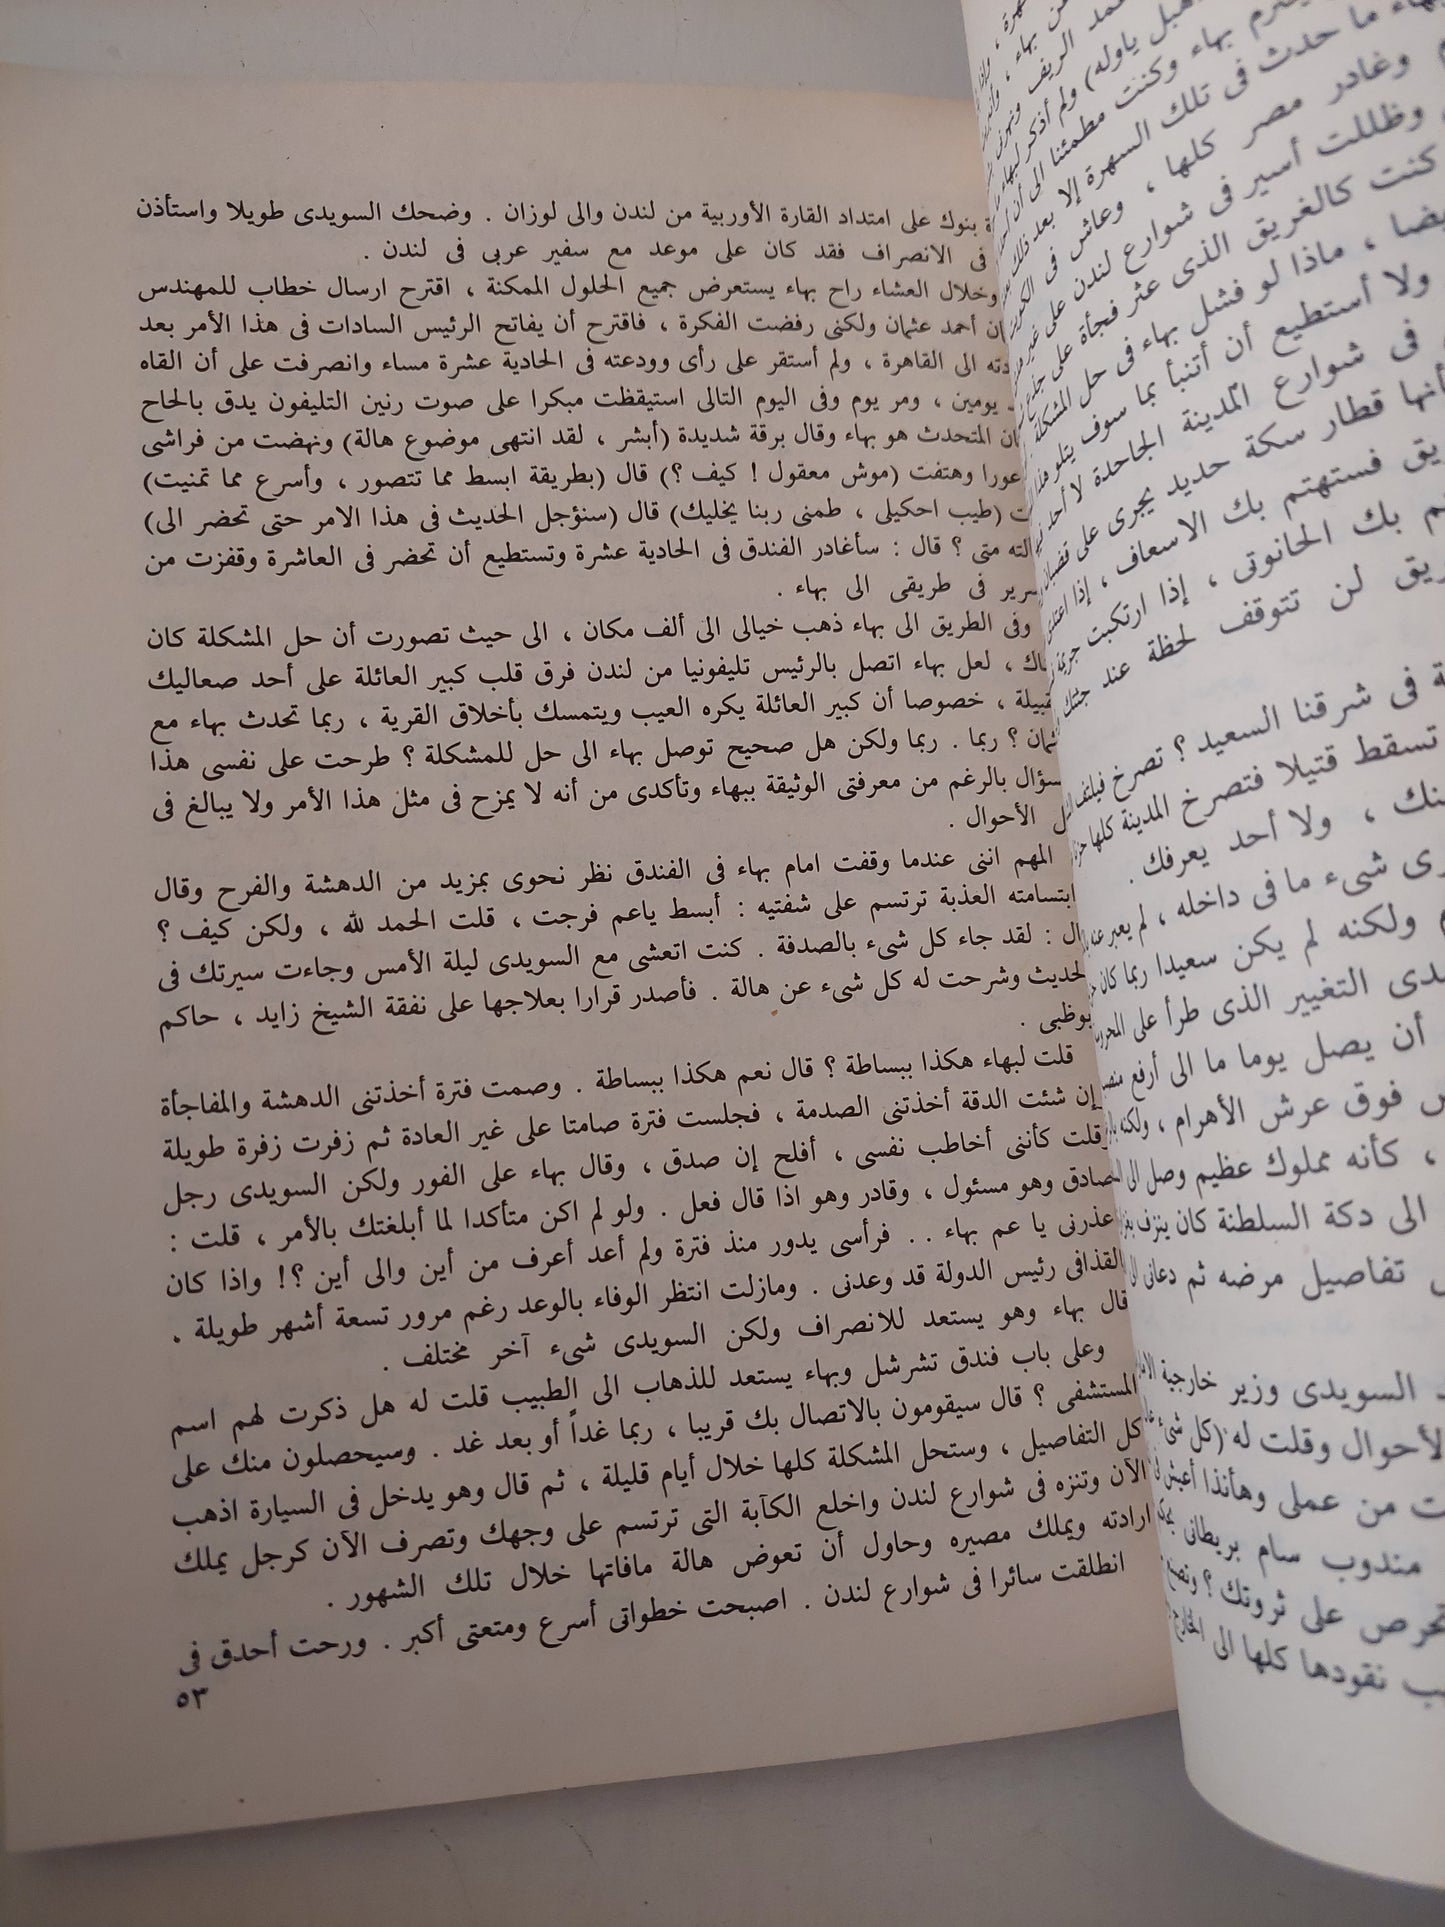 بنوك على امتداد القارة الأوربية من لندن والى لوزان . وضحك السويدى طويلا واستأذن
فى الانصراف فقد كان على موعد مع سفير عربى فى لندن .
وخلال العشاء راح بهاء يستعرض جميع الحلول الممكنة ، اقترح ارسال خطاب للمهندس
أحمد عثمان ولكنى رفضت الفكرة ، فاقترح أن يفاتح الرئيس السادات فى هذا الأمر بعد
الى القاهرة ، ولم أستقر على رأى وودعته فى الحادية عشرة مساء وانصرفت على أن القاه
يومين ، ومر يوم وفى اليوم التالى استيقظت مبكرا على صوت رنين التليفون يدق بالحاح
المتحدث هو بهاء وقال برقة شديدة (أبشر ، لقد انتهى موضوع هالة) ونهضت من فراشى
وهتفت (موش معقول ! كيف ؟) قال (بطريقة ابسط مما تتصور ، وأسرع مما تمنيت)
(طيب احكيلى ، طمنى ربنا يخليك) قال (سنؤجل الحديث فى هذا الامر حتى تحضر الى)
متى ؟ قال : سأغادر الفندق فى الحادية عشرة وتستطيع أن تحضر فى العاشرة وقفزت من
فى طريقى الى بهاء .
وفى الطريق الى بهاء ذهب خيالى الى ألف مكان ، الى حيث تصورت أن حل المشكلة كان
، لعل بهاء اتصل بالرئيس تليفونيا من لندن فرق قلب كبير العائلة على أحد صعاليك
، خصوصا أن كبير العائلة يكره العيب ويتمسك بأخلاق القرية ، ربما تحدث بهاء مع
؟ ربما . ربما ولكن هل صحيح توصل بهاء الى حل للمشكلة ؟ طرحت على نفسى هذا
بالرغم من معرفتى الوثيقة ببهاء وتأكدى من أنه لا يمزح فى مثل هذا الأمر ولا يبالغ فى
الأحوال .
المهم اننى عندما وقفت امام بهاء فى الفندق نظر نحوى بمزيد من الدهشة والفرح وقال
ابتسامته العذبة ترتسم على شفتيه : أبسط ياعم فرجت ، قلت الحمد لله ، ولكن كيف ؟
: لقد جاء كل شىء بالصدفة . كنت اتعشى مع السويدى ليلة الأمس وجاءت سيرتك فى
الحديث وشرحت له كل شىء عن هالة . فأصدر قرارا بعلاجها على نفقة الشيخ زايد ، حاكم
.
قلت لبهاء هكذا ببساطة ؟ قال نعم هكذا ببساطة . وصمت فترة أخذتنى الدهشة والمفاجأة
إن شئت الدقة أخذتنى الصدمة ، فجلست فترة صامتا على غير العادة ثم زفرت زفرة طويلة
وقلت كأننى أخاطب نفسى ، أفلح إن صدق ، وقال بهاء على الفور ولكن السويدى رجل
صادق وهو مسئول ، وقادر وهو اذا قال فعل . ولو لم اكن متأكدا لما أبلغتك بالأمر ، قلت :
اعذرنى يا عم بهاء .. فرأسى يدور منذ فترة ولم أعد أعرف من أين والى أين ؟! واذا كان
القذافى رئيس الدولة قد وعدنى . ومازلت انتظر الوفاء بالوعد رغم مرور تسعة أشهر طويلة .
قال بهاء وهو يستعد للانصراف ولكن السويدى شىء آخر مختلف .
وعلى باب فندق تشرشل وبهاء يستعد للذهاب الى الطبيب قلت له هل ذكرت لهم اسم
المستشفى ؟ قال سيقومون بالاتصال بك قريبا ، ربما غداً أو بعد غد . وسيحصلون منك على
كل التفاصيل ، وستحل المشكلة كلها خلال أيام قليلة ، ثم قال وهو يدخل فى السيارة اذهب
الآن وتنزه فى شوارع لندن واخلع الكآبة التى ترتسم على وجهك وتصرف الآن كرجل يملك
ارادته ويملك مصيره وحاول أن تعوض هالة مافاتها خلال تلك الشهور .
انطلقت سائرا فى شوارع لندن . اصبحت خطواتى أسرع ومتعتى أكبر . ورحت أحدق فى
٥٣
بهاء وكنت مطمئنا الى أن
ما حدث فى تلك السهرة إلا بعد ذلك
وغادر مصر كلها ، وعاش فى
وظللت أسير فى شوارع لندن على غير
كنت كالغريق الذى عثر فجأة على
، ماذا لو فشل بهاء فى حل المشكلة
ولا أستطيع أن أتنبأ بما سوف يتلو هذا
فى شوارع المدينة الجاحدة لا أحد
قطار سكة حديد يجرى على قضبان
فستهتم بك الاسعاف ، إذا
بك الحانوتى ، إذا ارتكبت جريمة
لن تتوقف لحظة عند جثتك
فى شرقنا السعيد ؟ تصرخ
تسقط قتيلا فتصرخ المدينة كلها
، ولا أحد يعرفك .
شىء ما فى داخله ، لم يعبر عنه
ولكنه لم يكن سعيدا ربما كان
التغيير الذى طرأ على
أن يصل يوما ما الى أرفع
فوق عرش الأهرام ، ولكنه
، كأنه مملوك عظيم وصل الى
الى دكة السلطنة كان ينزف
تفاصيل مرضه ثم دعانى الى
السويدى وزير خارجية
الأحوال وقلت له (كل شىء
من عملى وهأنذا أعيش
مندوب سام بريطانى
تحرص على ثروتك ؟
نقودها كلها الى الخارج